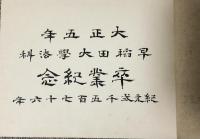 大正五年
早稲田大學法科
卒業紀念
紀元貳千五百七十六年